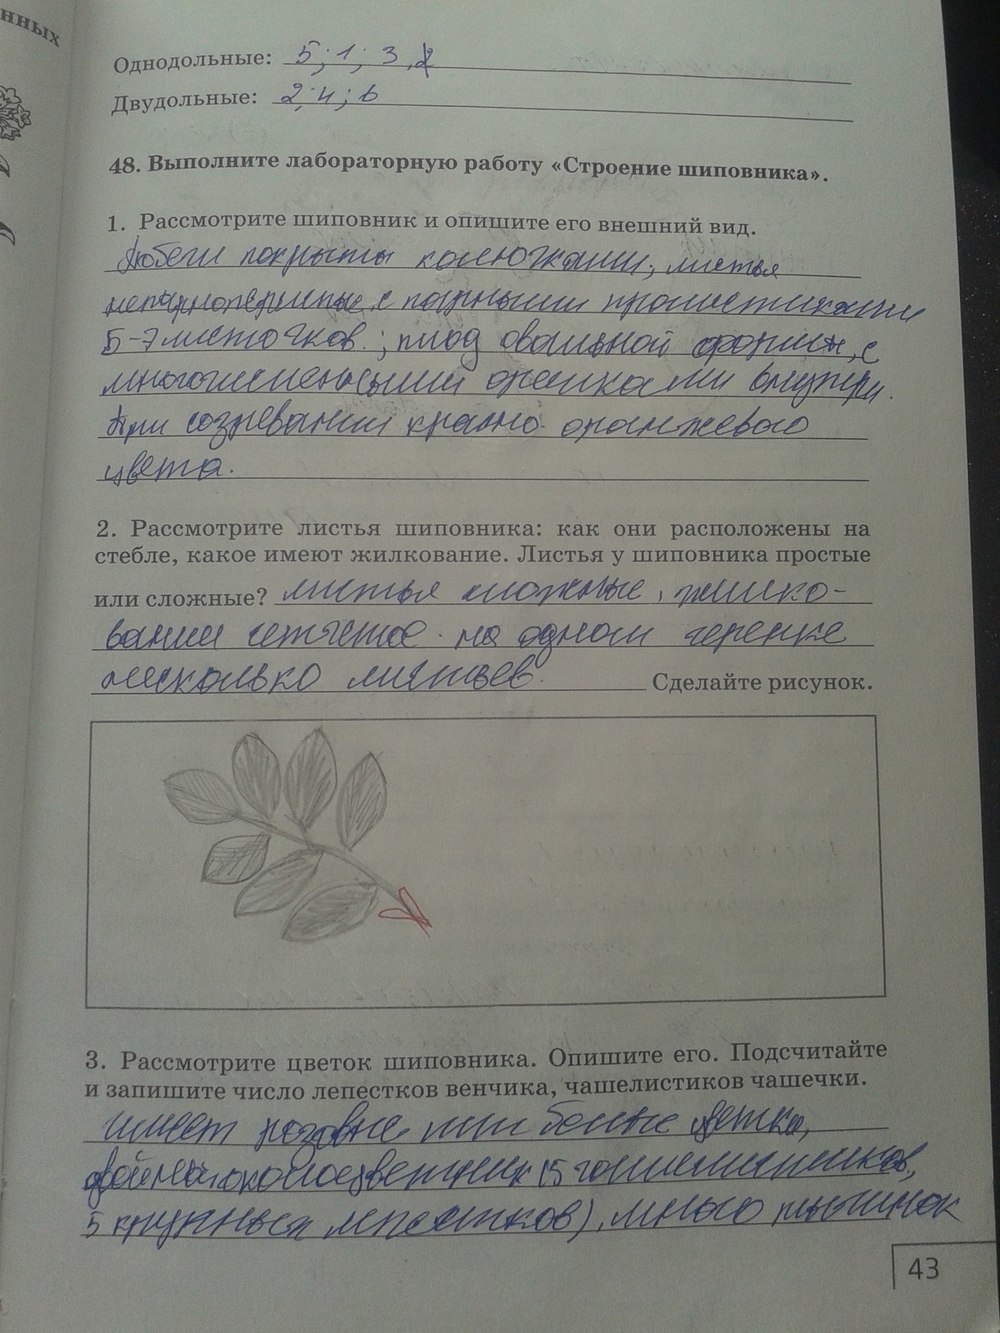 нных
Однодольные: 5; 1; 3
Двудольные: 2; 4; 6
48. Выполните лабораторную работу «Строение шиповника».
1. Рассмотрите шиповник и опишите его внешний вид.
Побеги покрыты колючками, листья
непарноперистые с парными прилистниками
5-7 листочков.; плод овальной формы, с
многочисленными орешками внутри.
При созревании красно-оранжевого
цвета.
2. Рассмотрите листья шиповника: как они расположены на
стебле, какое имеют жилкование. Листья у шиповника простые
или сложные? листья сложные, жилко-
вание сетчатое. на одном черенке
несколько листьев. Сделайте рисунок.
3. Рассмотрите цветок шиповника. Опишите его. Подсчитайте
и запишите число лепестков венчика, чашелистиков чашечки.
имеет розовые или белые цветки,
двойной околоцветник (5 чашелистиков,
5 крупных лепестков), много тычинок
43